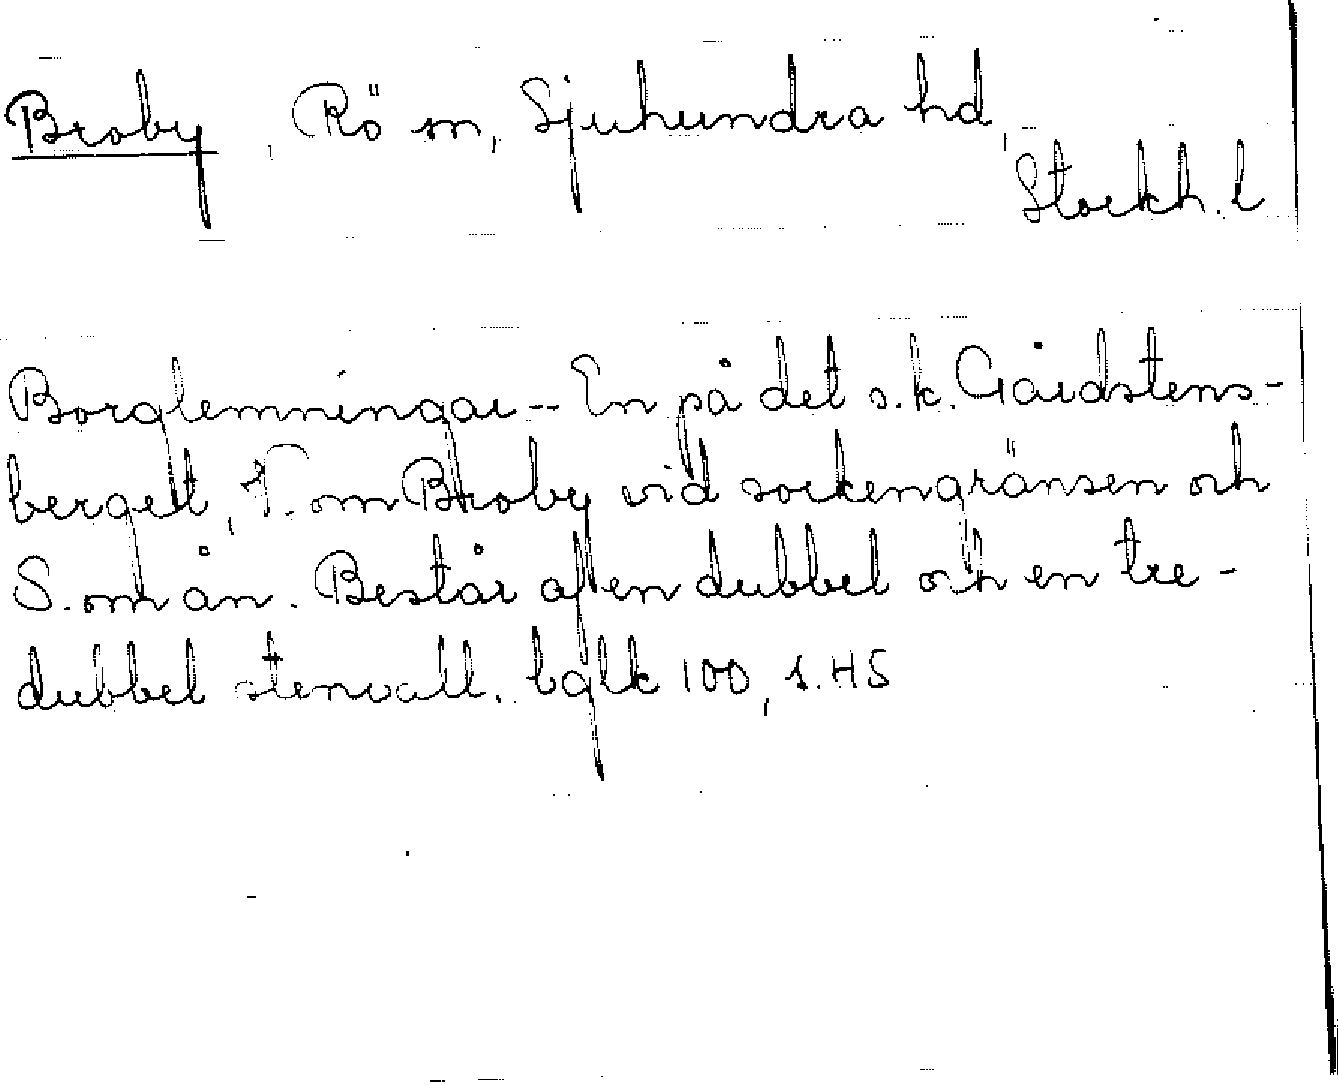 Broby, Rö sn, Sjuhundra hd,
Stockh. l
Borglemningar -- En på det s.k. Gårdstens-
berget, V. om Broby vid sockengränsen och
S. om ån. Består af en dubbel och en tre-
dubbel stenvall. bglk 100, s. 45